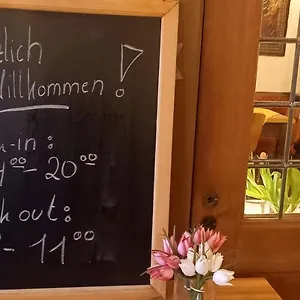 lich
illkommen !
-in :
4⁰⁰ - 20⁰⁰
k out :
- 11⁰⁰